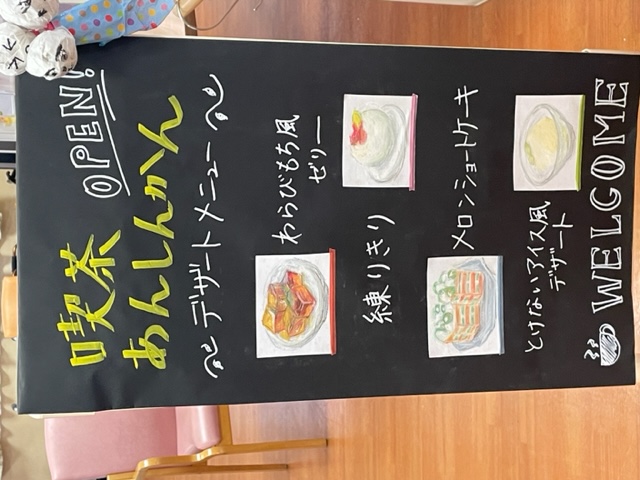 OPEN!
喫茶
あんしんかん
～デザートメニュー～
わらびもち風
ゼリー
練りきり
メロンショートケーキ
とけないアイス風
デザート
WELGOME